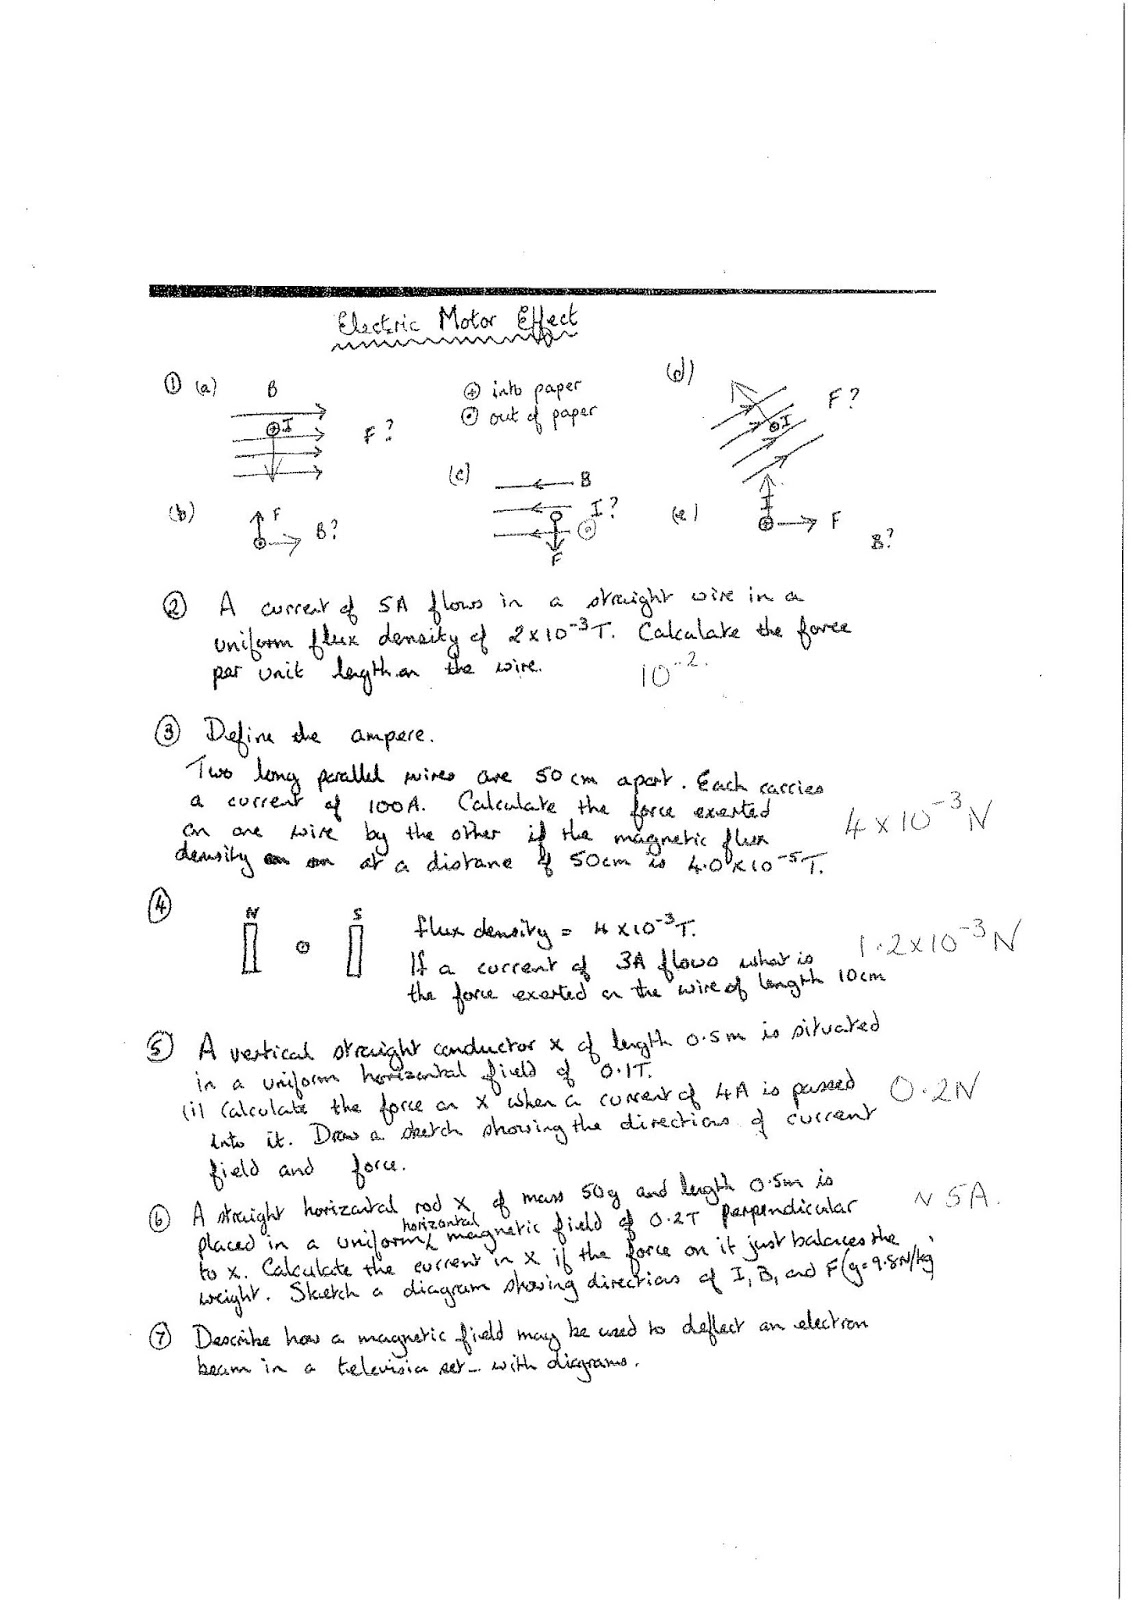 Electric Motor Effect
① (a) B
I
F?
⊕ into paper
⊙ out of paper
(d)
F?
I
(b) F
B?
(c)
B
I?
F
(e) I
F
B?
② A current of 5A flows in a straight wire in a
uniform flux density of 2x10⁻³T. Calculate the force
per unit length on the wire.
10⁻².
③ Define the ampere.
Two long parallel wires are 50cm apart. Each carries
a current of 100A. Calculate the force exerted
on one wire by the other if the magnetic flux
density at a distane of 50cm is 4.0x10⁻⁵T.
4x10⁻³N
④
N S
flux density = 4x10⁻³T.
If a current of 3A flows what is
the force exerted on the wire of length 10cm
1.2x10⁻³N
⑤ A vertical straight conductor X of length 0.5m is situated
in a uniform horizontal field of 0.1T.
(i) Calculate the force on X when a current of 4A is passed
into it. Draw a sketch showing the directions of current
field and force.
0.2N
⑥ A straight horizontal rod X, of mass 50g and length 0.5m is
placed in a uniform horizontal magnetic field of 0.2T perpendicular
to X. Calculate the current in X if the force on it just balances the
weight. Sketch a diagram showing directions of I, B, and F (g=9.8N/kg)
~ 5A.
⑦ Describe how a magnetic field may be used to deflect an electron
beam in a television set - with diagrams.